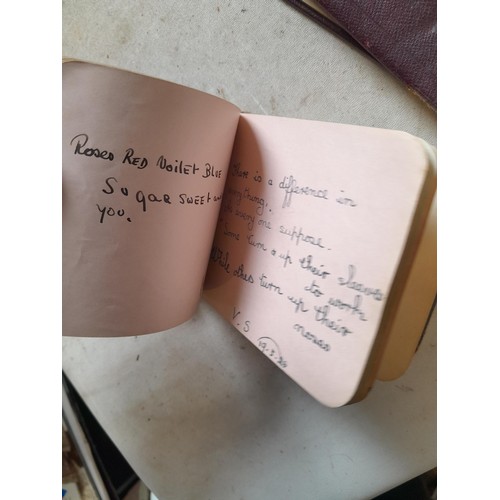 Roses RED Voilet BLUE
Sugar SWEET and
YOU.
there is a difference in
everything,.
every one suppose.
Some turn up their sleeves
to work
While others turn up their
noses
V.S